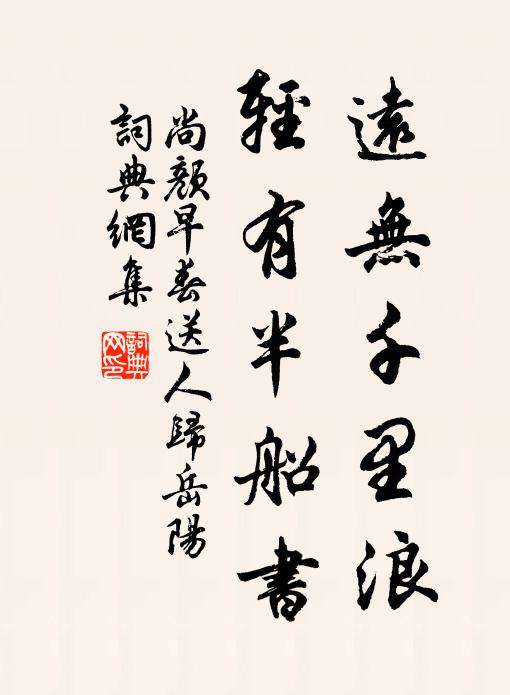 遠無千里浪
輕有半船書
尚顏早春送人歸岳陽
詞典網集
詞典网印